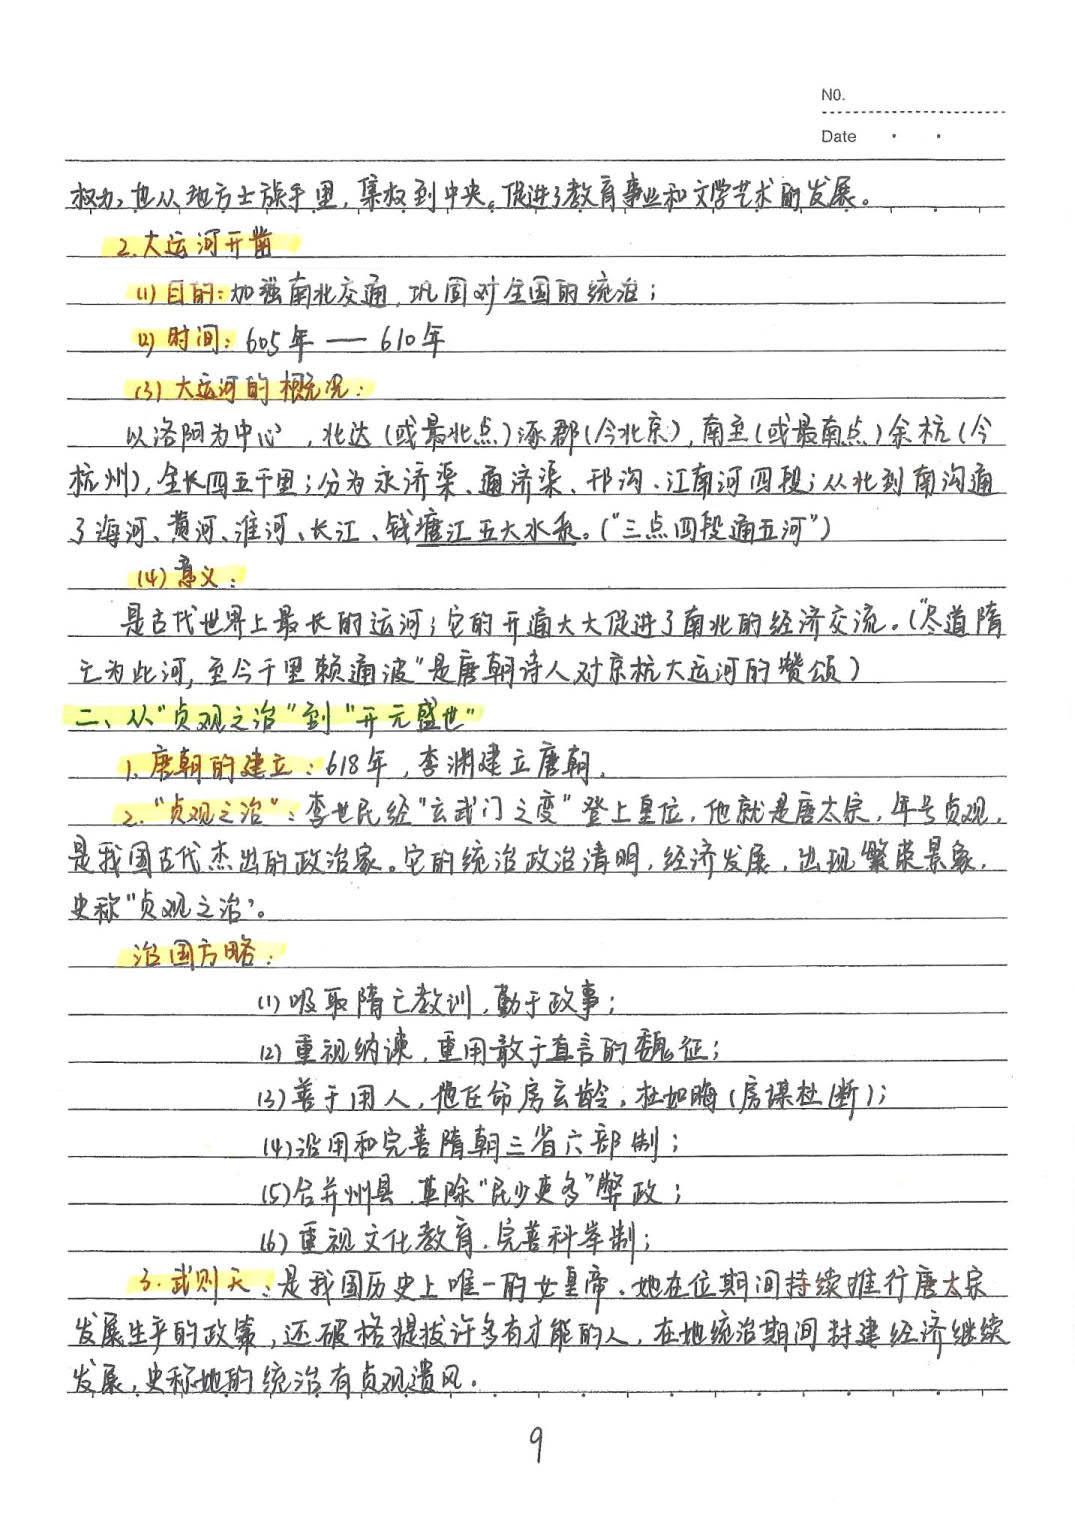 NO.
Date
权力,也从地方士族手里,集权到中央。促进了教育事业和文学艺术的发展。
2.大运河开凿
(1)目的:加强南北交通,巩固对全国的统治;
(2)时间:605年——610年
(3)大运河的概况:
以洛阳为中心,北达(或最北点)涿郡(今北京),南至(或最南点)余杭(今
杭州),全长四五千里;分为永济渠、通济渠、邗沟、江南河四段;从北到南沟通
了海河、黄河、淮河、长江、钱塘江五大水系。("三点四段通五河")
(4)意义:
是古代世界上最长的运河;它的开通大大促进了南北的经济交流。("尽道隋
亡为此河,至今千里赖通波"是唐朝诗人对京杭大运河的赞颂)
二、从"贞观之治"到"开元盛世"
1.唐朝的建立:618年,李渊建立唐朝.
2."贞观之治":李世民经"玄武门之变"登上皇位,他就是唐太宗,年号贞观,
是我国古代杰出的政治家。它的统治政治清明,经济发展,出现繁荣景象,
史称"贞观之治"。
治国方略:
(1)吸取隋亡教训,勤于政事;
(2)重视纳谏,重用敢于直言的魏征;
(3)善于用人,他任命房玄龄,杜如晦(房谋杜断);
(4)沿用和完善隋朝三省六部制;
(5)合并州县,革除"民少吏多"弊政;
(6)重视文化教育.完善科举制;
3.武则天:是我国历史上唯一的女皇帝.她在位期间持续推行唐太宗
发展生产的政策,还破格提拔许多有才能的人,在她统治期间封建经济继续
发展,史称她的统治有贞观遗风.
9